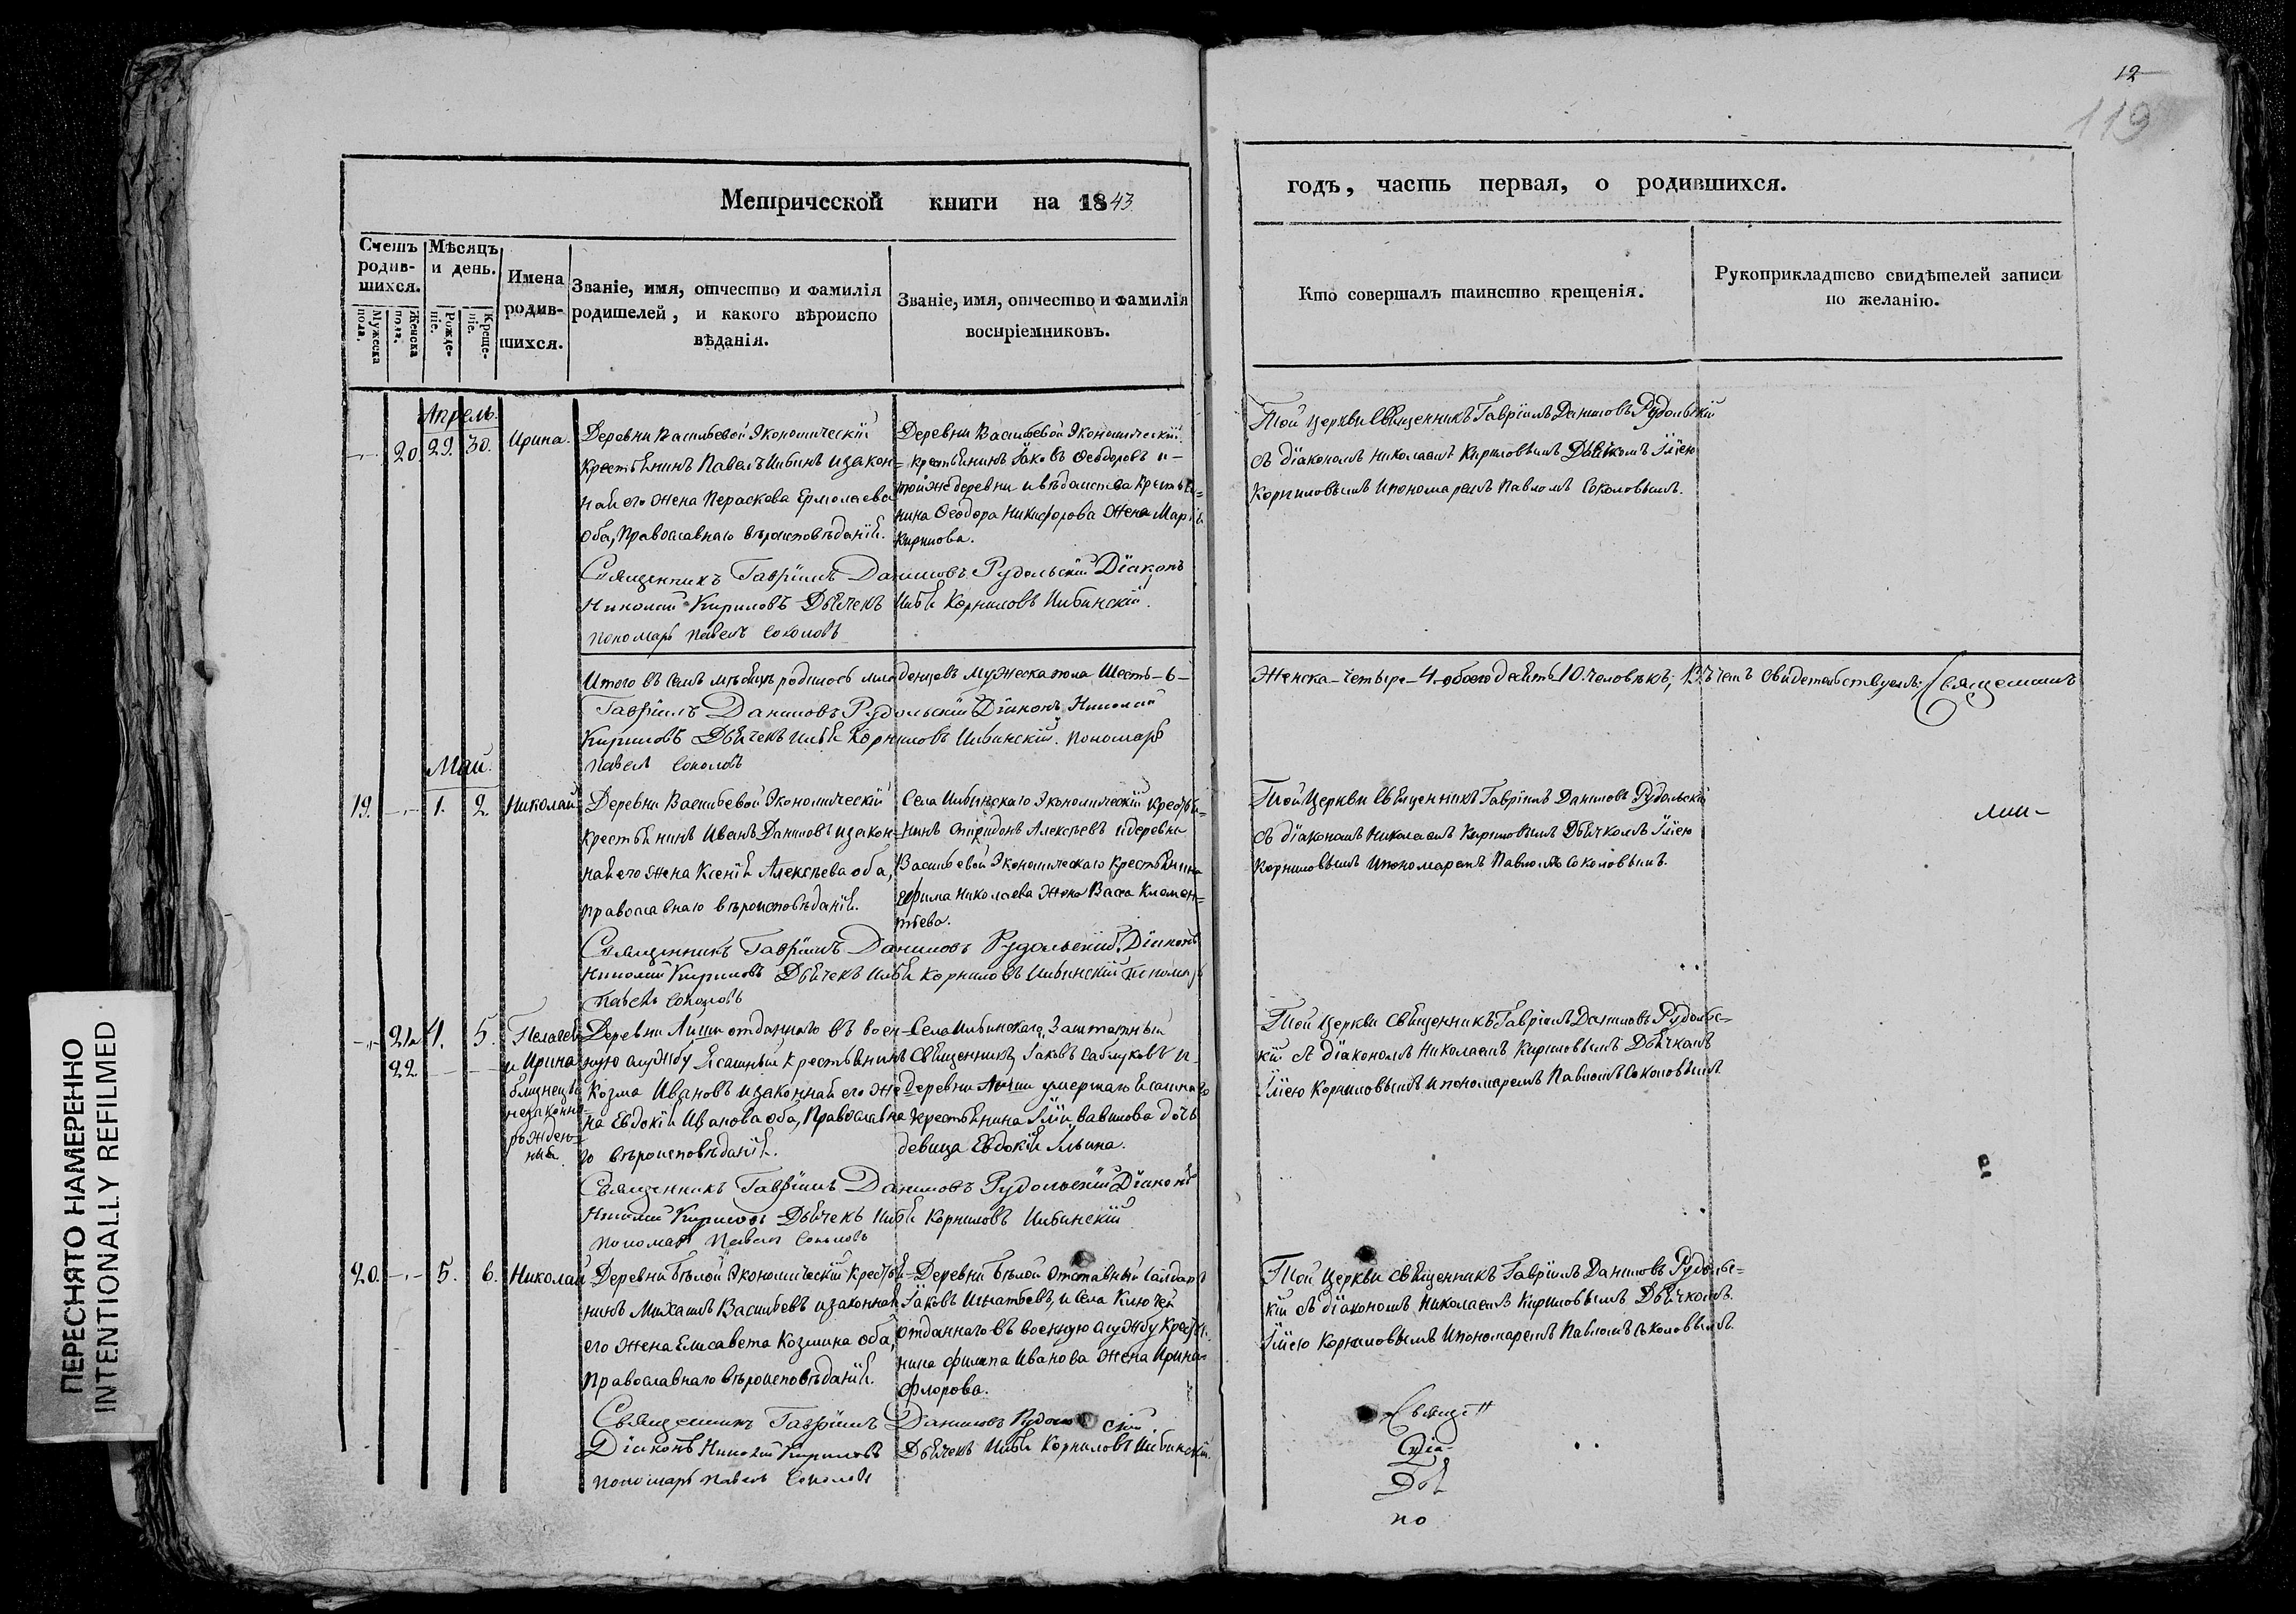 12
119
Метрической книги на 1843
годъ, часть первая, о родившихся.
Счетъ родив- шихся.
Мужеска пола.
Женска пола.
Мѣсяцъ и день.
Рожде- ніе.
Креще- ніе.
Имена родив- шихся.
Званіе, имя, отчество и фамилія
родителей, и какого вѣроиспо
вѣданія.
Званіе, имя, отчество и фамилія
воспріемниковъ.
Кто совершалъ таинство крещенія.
Рукоприкладтсво свидѣтелей записи
по желанію.
Апрель.
20 29. 30. Ирина.
Деревни Васильевой Экономическій
крестьянинъ Павелъ Ильинъ и закон-
ная его жена Пераскова Ермолаева
оба, Православнаго вѣроисповѣданія.
Деревни Васильевой Экономическій
крестьянинъ Іаковъ Ѳеодоровъ и
той же деревни и вѣдомства крестья-
нина Ѳеодора Никифорова жена Марія
Кирилова.
Той церкви Священникъ Гавріилъ Даниловъ Рудольскій
съ діакономъ Николаемъ Кириловымъ Дьячкомъ Іліею
Корниловымъ и пономаремъ Павломъ Соколовымъ.
Священникъ Гавріилъ Даниловъ Рудольскій Діаконъ
Николай Кириловъ Дьячекъ Илья Корниловъ Ильинскій.
пономарь Павелъ Соколовъ
Итого въ семъ мѣсяцѣ родилось младенцовъ мужеска пола Шесть-6-
Женска-четыре-4-обоего десять 10. человѣкъ; въ чемъ свидетельствуемъ: Священникъ
Гавріилъ Даниловъ Рудольскій Діаконъ Николай
Кириловъ Дьячекъ Илья Корниловъ Ильинскій. Пономарь
Павелъ Соколовъ
Май.
19. 1. 2 Николай
Деревни Васильевой Экономическій
крестьянинъ Иванъ Даниловъ и закон-
ная его жена Ксенія Алексѣева оба,
православнаго вѣроисповѣданія.
Села Ильинскаго Экономическій крестья-
нинъ Спиридонъ Алексѣевъ и деревни
Васильевой Экономическаго крестьянина
Ефима Николаева жена Васса Клемен-
тьева.
Той Церкви Священникъ Гавріилъ Даниловъ Рудольскій
съ діакономъ Николаемъ Кириловымъ Дьячкомъ Іліею
Корниловымъ и пономаремъ Павломъ Соколовымъ.
Священникъ Гавріилъ Даниловъ Рудольскій. Діаконъ
Николай Кириловъ Дьячекъ Илья Корниловъ Ильинскій пономарь
Павелъ Соколовъ
21 4. 5. Пелагея
22 и Ирина
близнецы
незаконно-
рожден-
ныя.
Деревни Лиши отданнаго въ воен-
ную службу Ясашный крестьянинъ
Козма Ивановъ и законная его же-
на Евдокія Иванова оба, Православна
го вѣроисповѣданія.
Села Ильинскаго Заштатный
Священникъ Іаковъ Саблуковъ и
деревни Лиши умершаго Ясашнаго
крестьянина Іліи Вавилова дочь
девица Евдокія Ильина.
Той Церкви священникъ Гавріилъ Даниловъ Рудольс-
кій съ діакономъ Николаемъ Кириловымъ Дьячкомъ
Іліею Корниловымъ и пономаремъ Павломъ Соколовымъ
Священникъ Гавріилъ Даниловъ Рудольскій Діаконъ
Николай Кириловъ Дьячекъ Илья Корниловъ Ильинскій
пономарь Павелъ Соколовъ
20. 5. 6. Николай
Деревни Бѣлой Экономическій крестья-
нинъ Михаилъ Васильевъ и законная
его жена Елисавета Козмина оба,
Православнаго вѣроисповѣданія.
Деревни Бѣлой Отставный салдатъ
Іаковъ Игнатьевъ, и села Ключей
отданнаго въ военную службу крестья-
нина Филипа Иванова жена Ирина
Флорова.
Той Церкви священникъ Гавріилъ Даниловъ Рудольс-
кій съ діакономъ Николаемъ Кириловымъ Дьячкомъ
Іліею Корниловымъ и пономаремъ Павломъ Соколовымъ.
Священникъ Гавріилъ Даниловъ Рудольскій
Діаконъ Николай Кириловъ Дьячекъ Илья Корниловъ Ильинскій.
пономарь Павелъ Соколовъ
по
ПЕРЕСНЯТО НАМЕРЕННО
INTENTIONALLY REFILMED